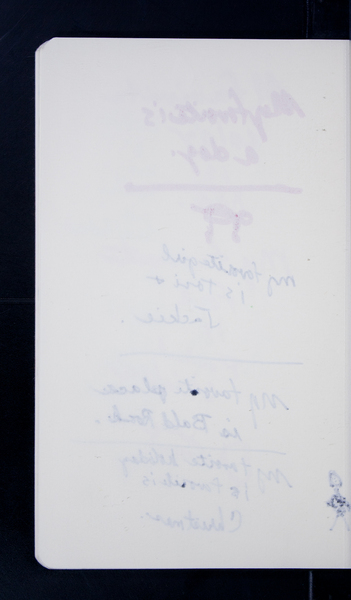 My favorite is
a dog.
My favorite girl
is Tori +
Jackie.
My favorite place
is Bald Rock.
My favorite holiday
is
Christmas.